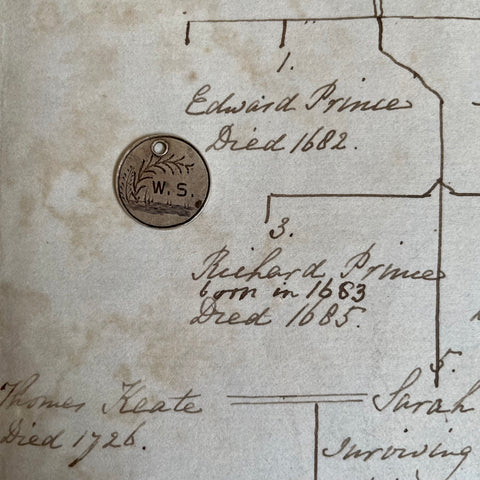 1.
Edward Prince
Died 1682.
W.S.
3.
Richard Prince
born in 1683
Died 1685.
5.
Thomas Keate
Died 1726.
Sarah
surviving